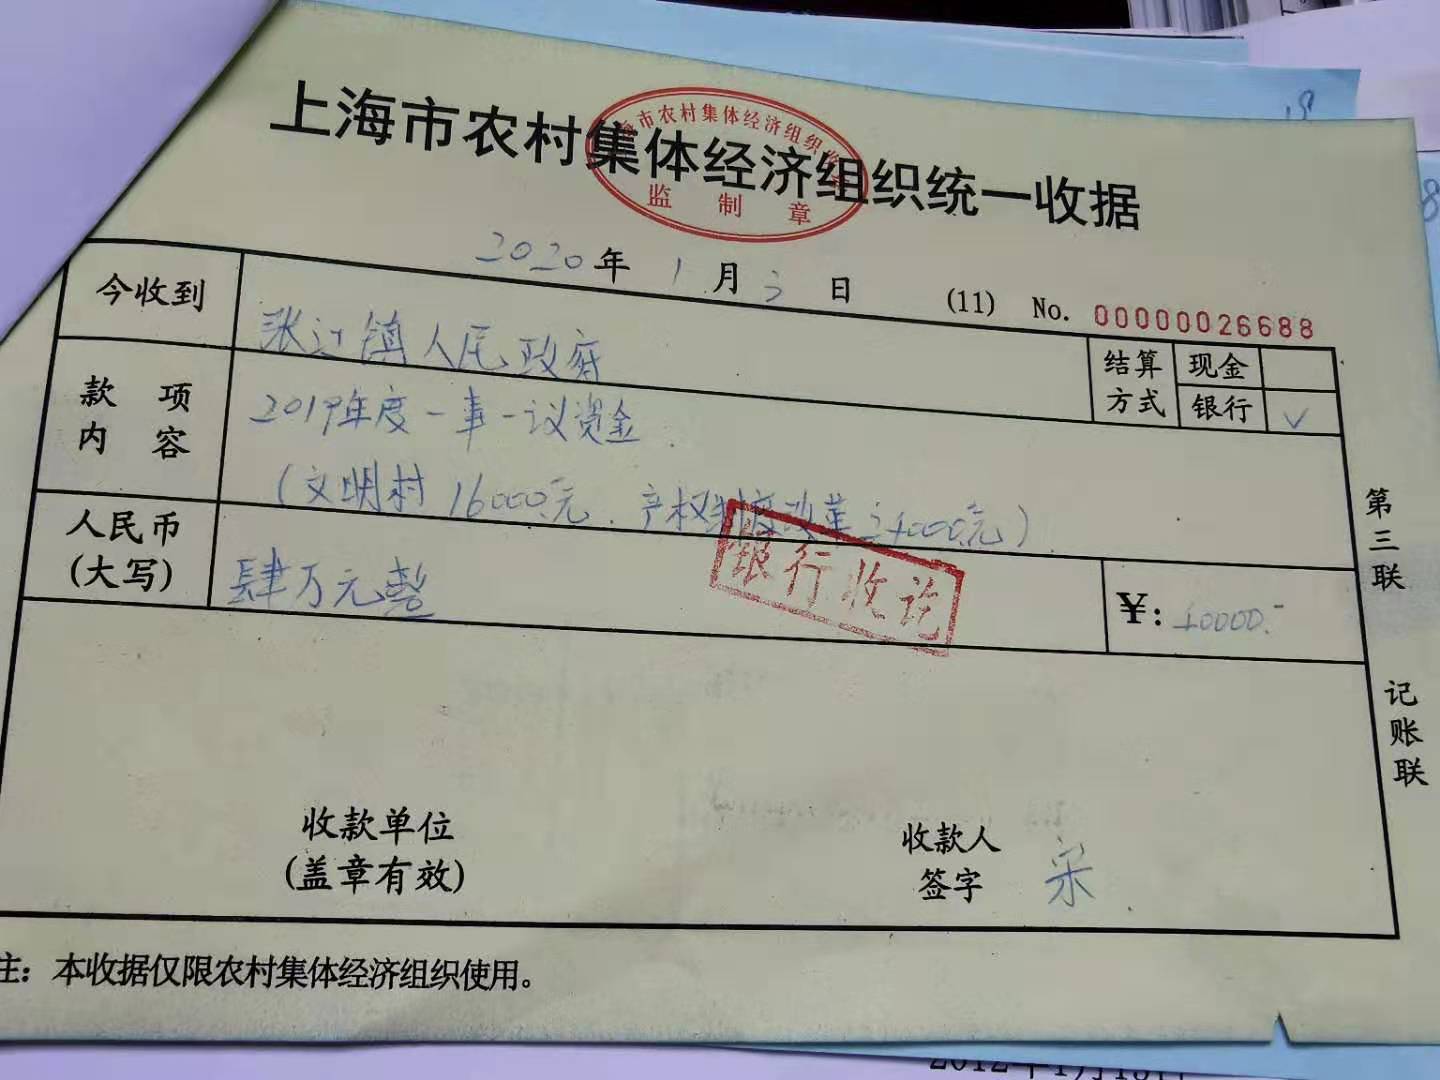 上海市农村集体经济组织统一收据
市农村集体经济组织收
监制章
2020年1月3日 (11) No. 00000026688
今收到 张江镇人民政府
结算方式 现金
银行 ✓
款项内容 2019年度一事一议资金.
(文明村16000元.产权制度改革24000元).
人民币(大写) 肆万元整
¥: 40000.-
银行收讫
第三联 记账联
收款单位
(盖章有效)
收款人
签字 宋
注: 本收据仅限农村集体经济组织使用。